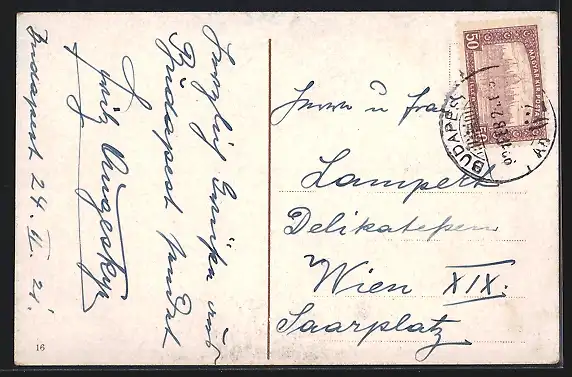 Budapest 24. II. 21.
Herzliche Grüße aus
Budapest sendet
Fritz
Herrn u Frau
Lampert
Delikatessen
Wien XIX.
Saarplatz
50
50
MAGYAR KIR. POSTA
BUDAPEST
16